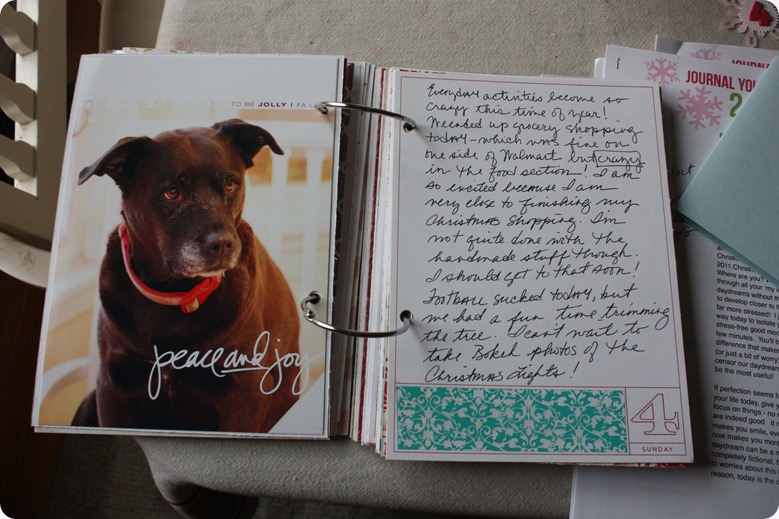 TO BE JOLLY | FA LA
peace and joy
Everyday activities become so
crazy this time of year!
We ended up grocery shopping
today - which was fine on
one side of Walmart but crazy
in the food section! I am
so excited because I am
very close to finishing my
Christmas shopping. I'm
not quite done with the
handmade stuff though.
I should get to that soon!
Football sucked today, but
we had a fun time trimming
the tree. I can't wait to
take Bokeh photos of the
Christmas Lights!
4
SUNDAY
JOURNAL
JOURNAL YOU
2
2011 Christ
Where are you?
through all your 'my
daydreams without
to develop closer to
far more stressed! I
way today to isolate
stress-free good mo
few minutes. You'll b
difference that make
(or just a bit of worry
censor our daydream
be the most useful!
If perfection seems f
your life today, give y
focus on things - no
are indeed good. It m
makes you smile, ev
now makes you mor
daydream can be a r
completely fictional, b
to worries about this
reason, today is the d